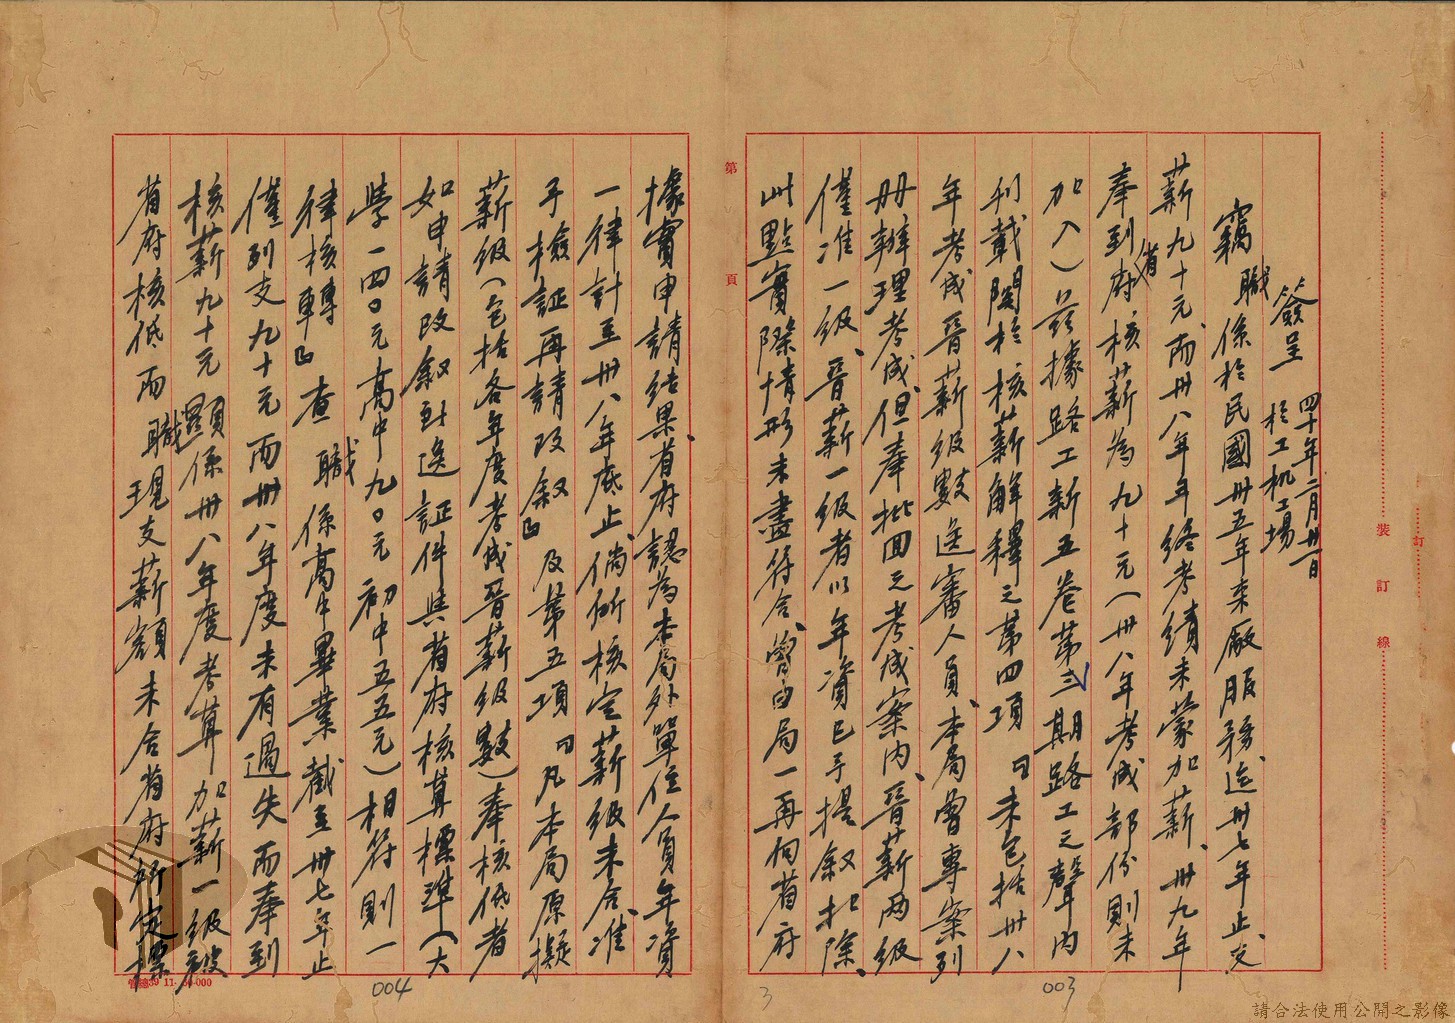 簽呈 四十年二月廿一日
於工机工場
竊職係於民國卅五年來廠服務迄卅七年止支
薪九十元、而卅八年年終考績未蒙加薪、卅九年
奉到省府核薪為九十元(卅八年考成部份則未
加入)茲據路工新五卷第三期路工之聲內
刊載關於核薪解釋之第四項「未包括卅八
年考成晉薪級數送審人員、本局曾專案列
冊辦理考成、但奉批回之考成案內、晉薪兩級
僅准一級、晉薪一級者以年資已予提敘扣除、
此點實際情形未盡符合、曾由局一再向省府
據實申請結果、省府認為本局外單位人員年資
一律計至卅八年底止、倘所核定薪級未合准
予檢証再請改敘」及第五項「凡本局原擬
薪級(包括各年度考成晉薪級數)奉核低者
如申請改敘到送証件與省府核算標準(大
學一四〇元高中九〇元初中五五元)相符則一
律核轉」查職係高中畢業截至卅七年止
僅到支九十元而卅八年度未有過失而奉到
核薪九十元顯係卅八年度考算加薪一級被
省府核低而職現支薪額未合省府所定標
第
頁
裝
訂
線
訂
3
003
004
11- 50-000
請合法使用公開之影像